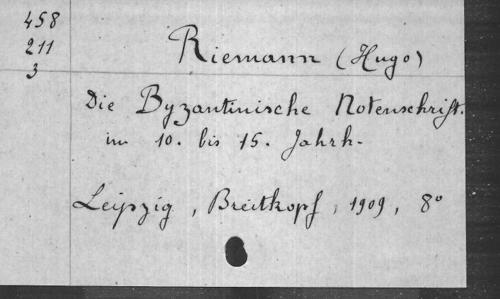 458
211
3
Riemann (Hugo)
Die Byzantinische Notenschrift.
im 10. bis 15. Jahrh.
Leipzig, Breitkopf, 1909, 8°